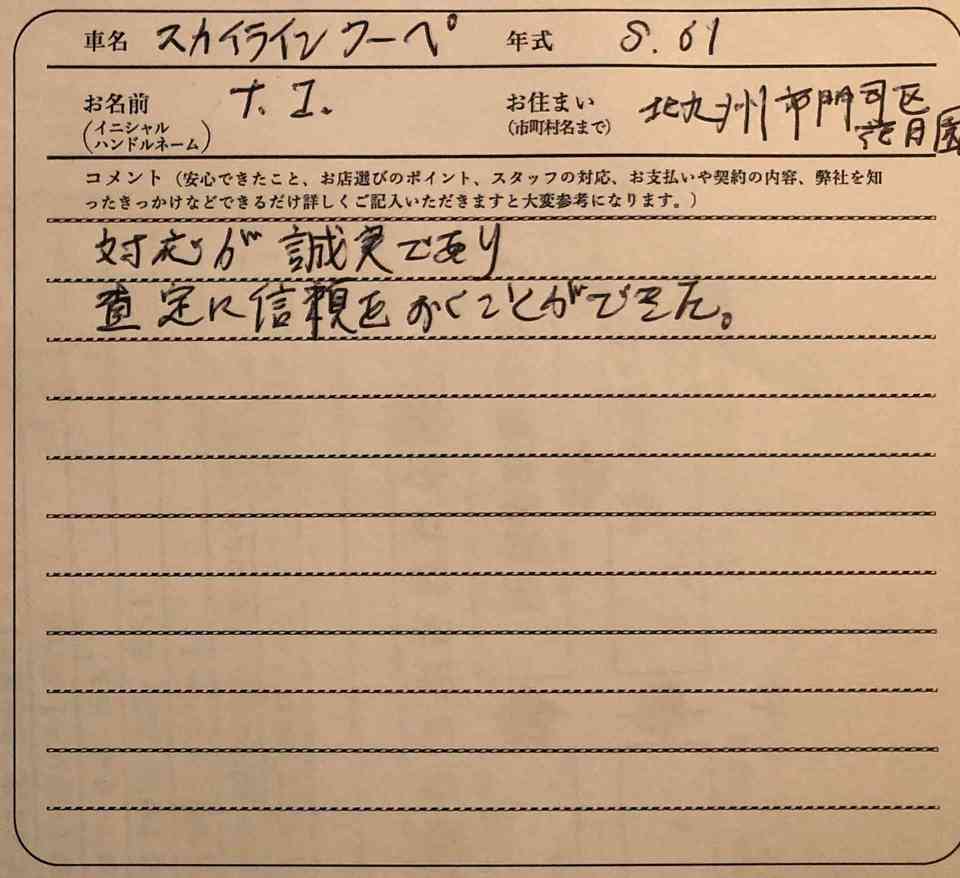 車名 スカイラインクーペ 年式 S.61
お名前 T.I. お住まい 北九州市門司区
(イニシャル (市町村名まで)
ハンドルネーム)
コメント（安心できたこと、お店選びのポイント、スタッフの対応、お支払いや契約の内容、弊社を知
ったきっかけなどできるだけ詳しくご記入いただきますと大変参考になります。）
対応が誠実であり
査定に信頼をおくことができた。